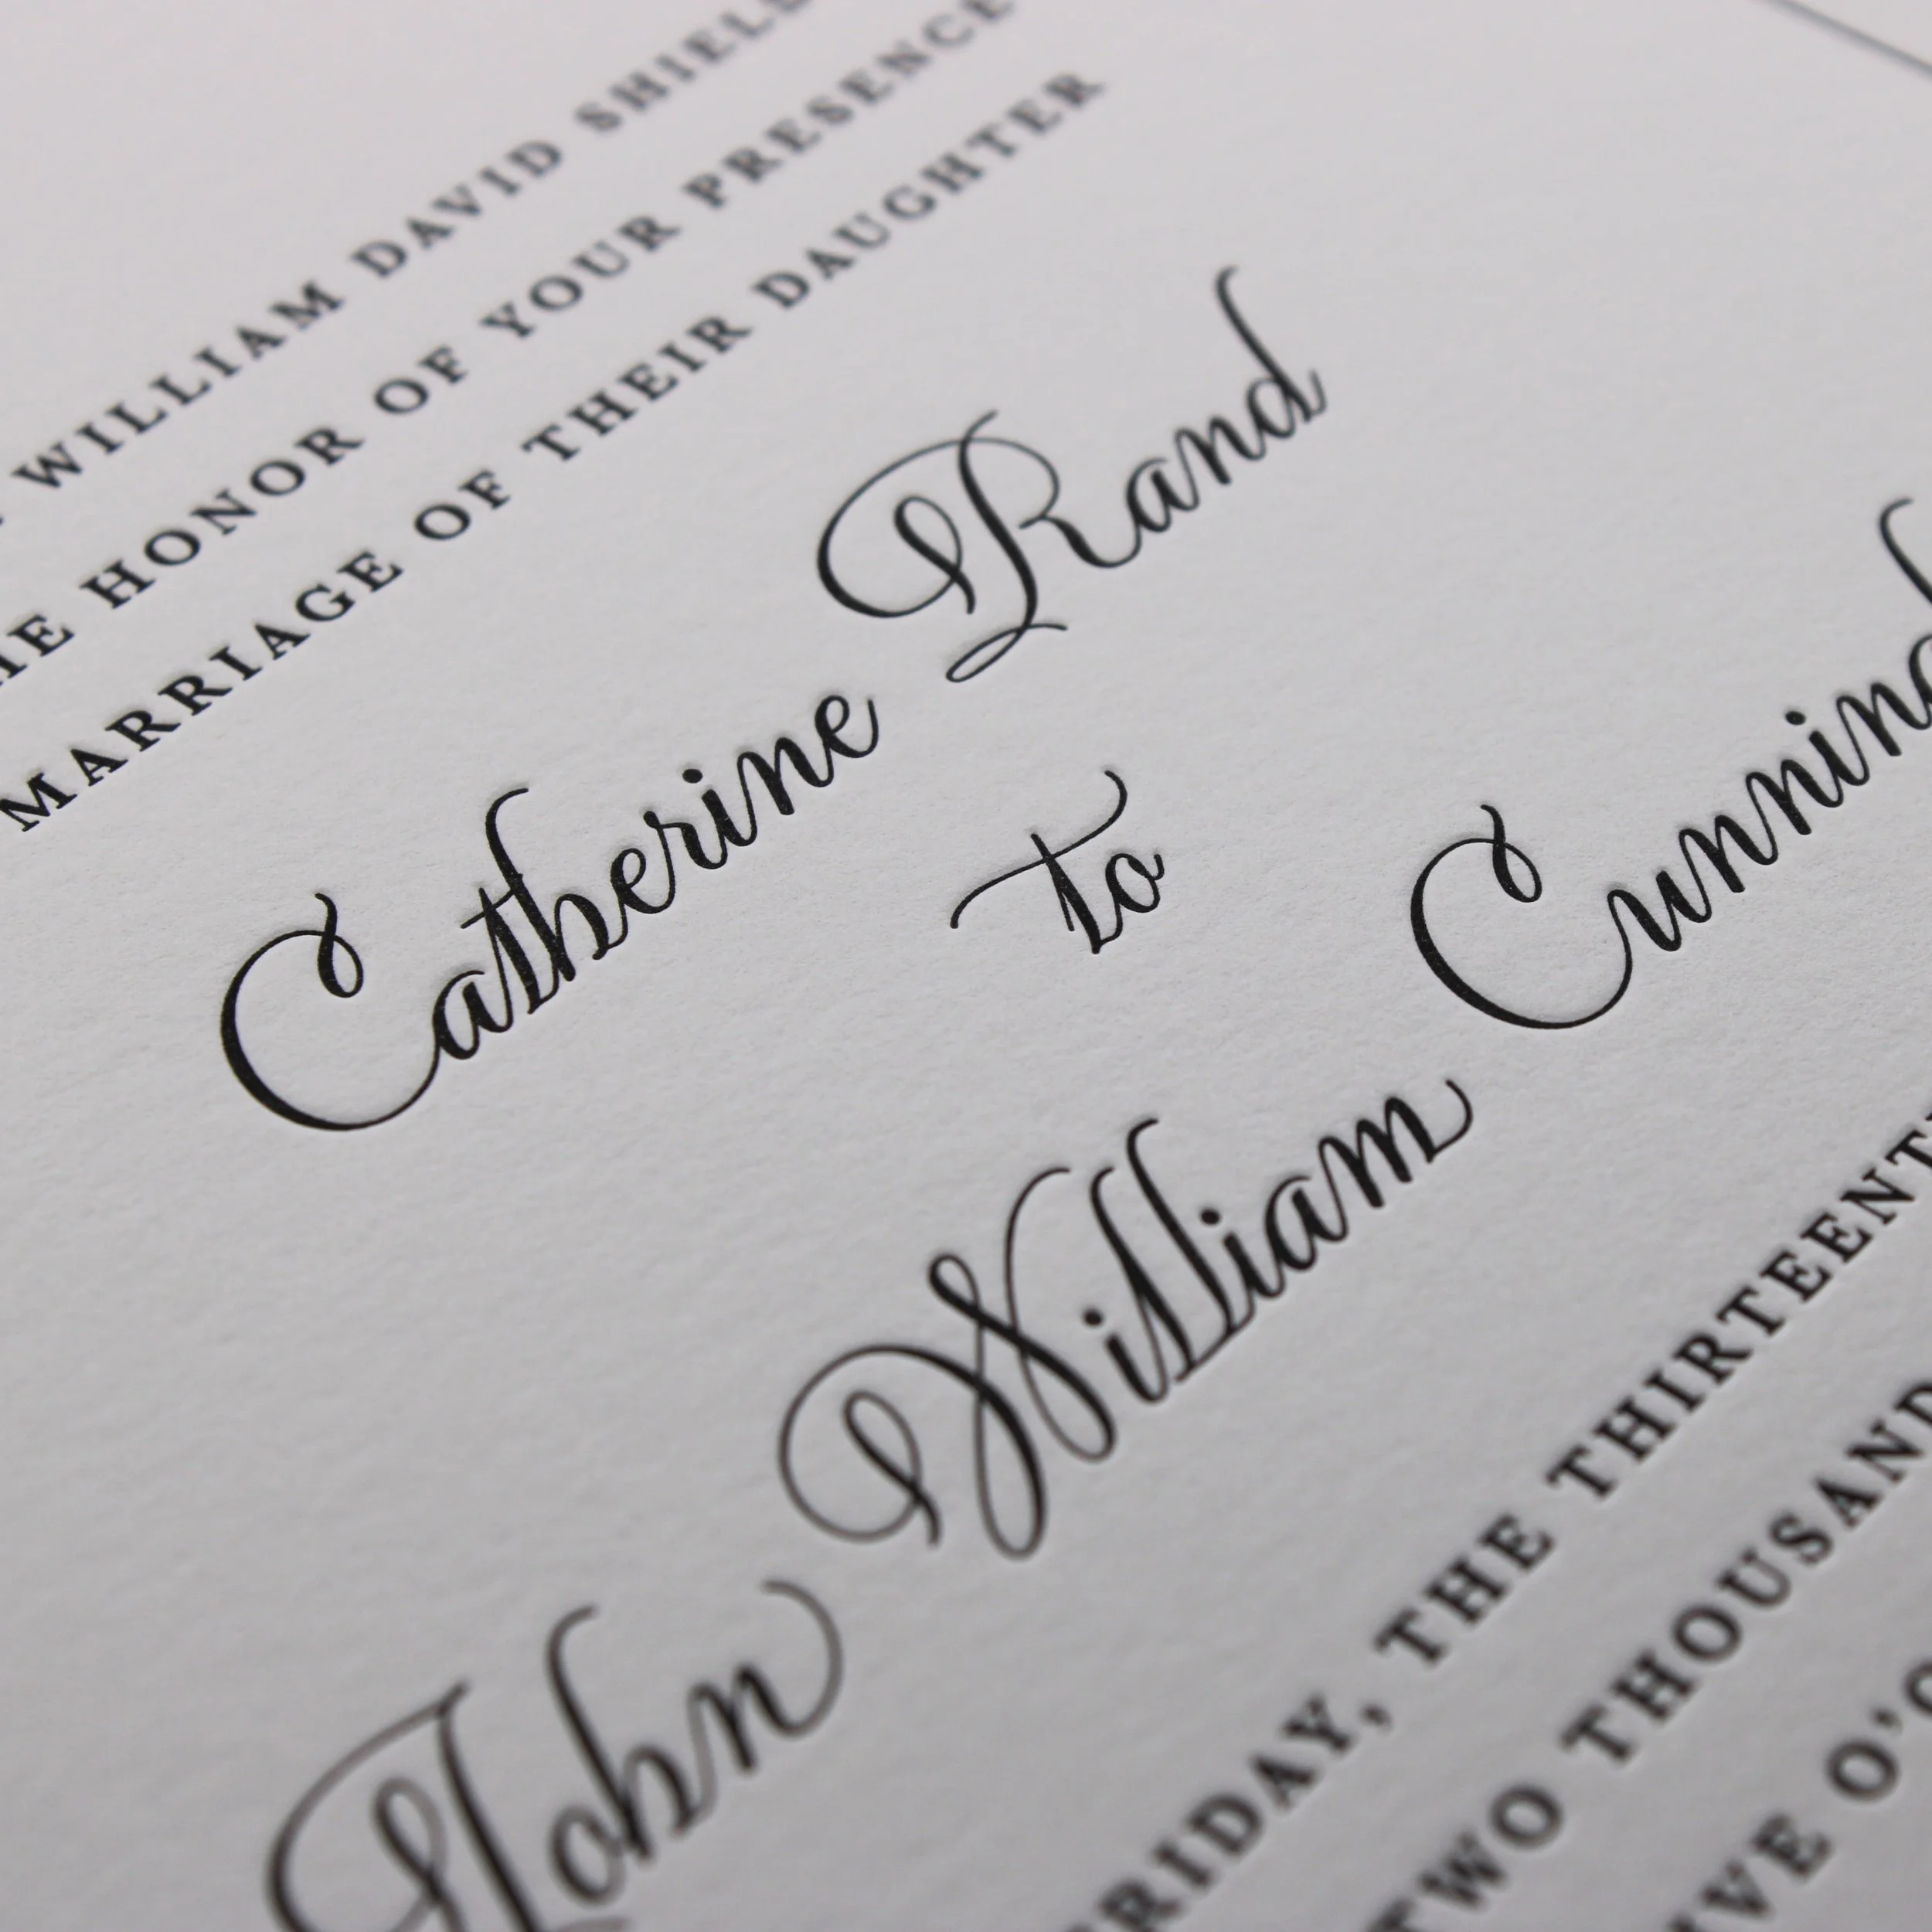 WILLIAM DAVID SHIELS
HONOR OF YOUR PRESENCE
MARRIAGE OF THEIR DAUGHTER
Catherine Rand
to
John William
THE THIRTEENTH
TWO THOUSAND